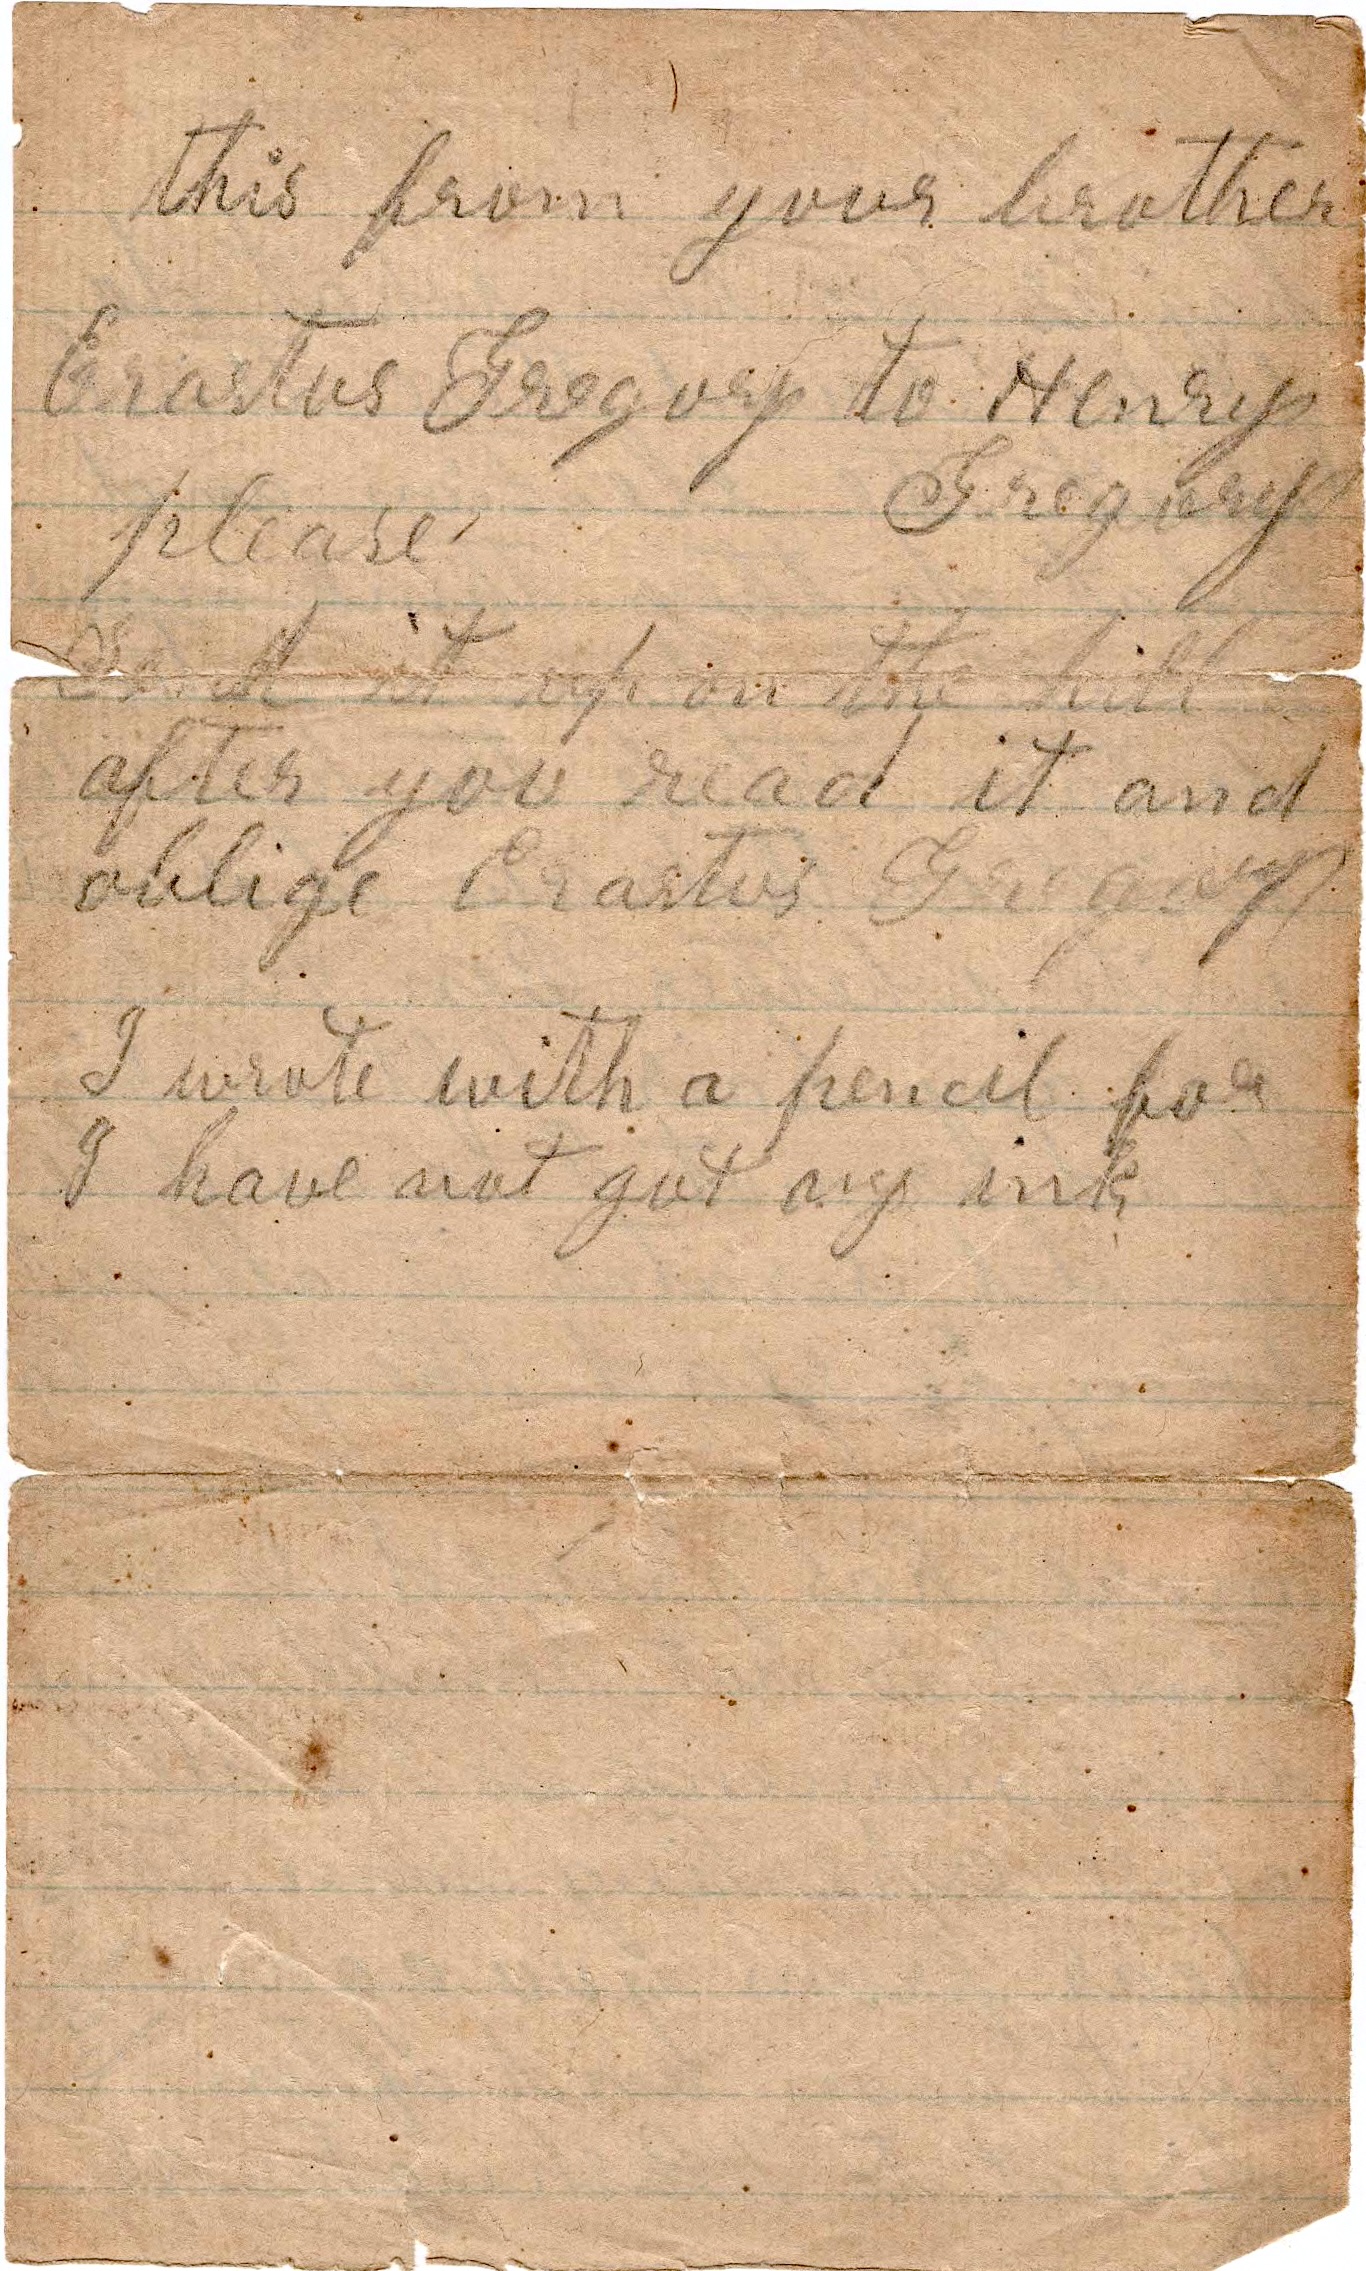 this from your brother
Erastus Gregory to Henry
Gregory
please
Send it up on the hill
after you read it and
oblige Erastus Gregory
I wrote with a pencil for
I have not got any ink